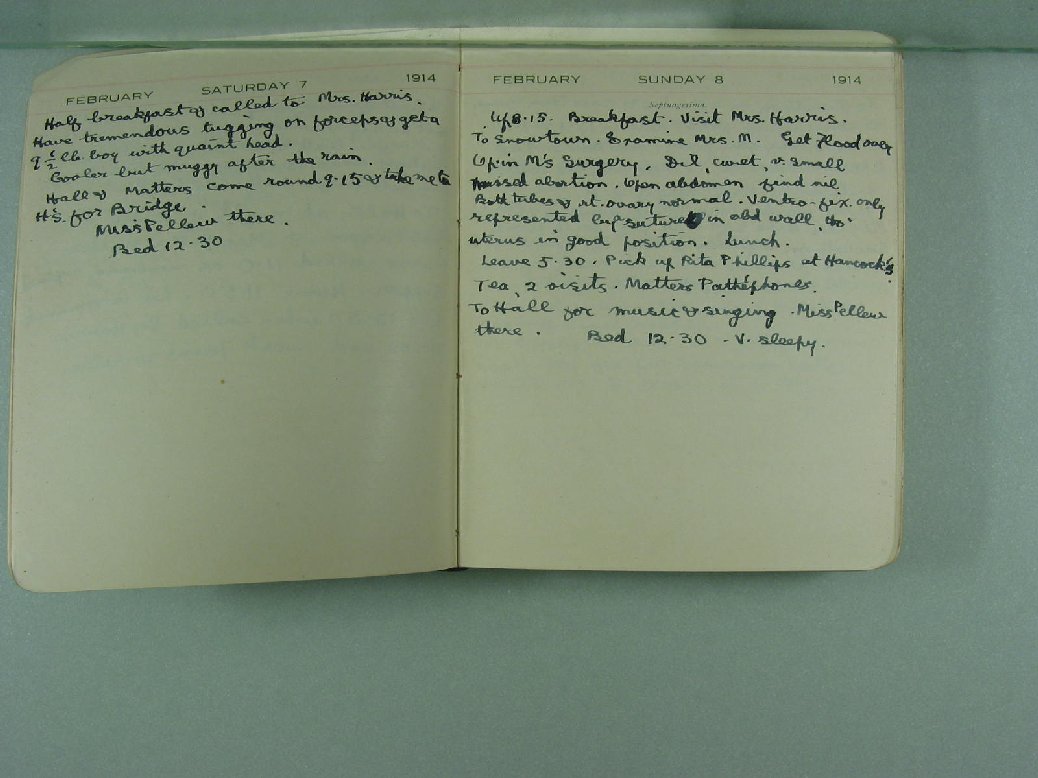 FEBRUARY SATURDAY 7 1914
Half breakfast & called to Mrs. Harris.
Have tremendous tugging on forceps & get a
9 1/2 lb. boy with quaint head.
Cooler but muggy after the rain.
Hall & Matters come round 9.15 & take me to
H's. for Bridge.
Miss Pellew there.
Bed 12.30
FEBRUARY SUNDAY 8 1914
Septuagesima
Up 8.15. Breakfast. Visit Mrs. Harris.
To Snowtown. Examine Mrs. M. Get Flood over
Op. in M's Surgery, Dil, curet, & small
missed abortion. Open abdomen find nil
Both tubes & rt. ovary normal. Ventro-fix. only
represented by suture in abd wall, tho'
uterus in good position. Lunch.
Leave 5.30. Pick up Rita Phillips at Hancock's.
Tea, 2 visits. Matters Pathéphones.
To Hall for music & singing. Miss Pellew
there. Bed 12.30 - V. sleepy.